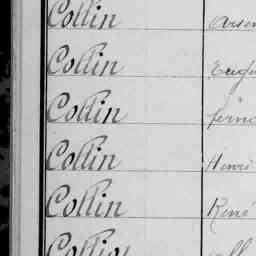 Collin Arsen
Collin Eugè
Collin Ferna
Collin Henri
Collin René
Collin